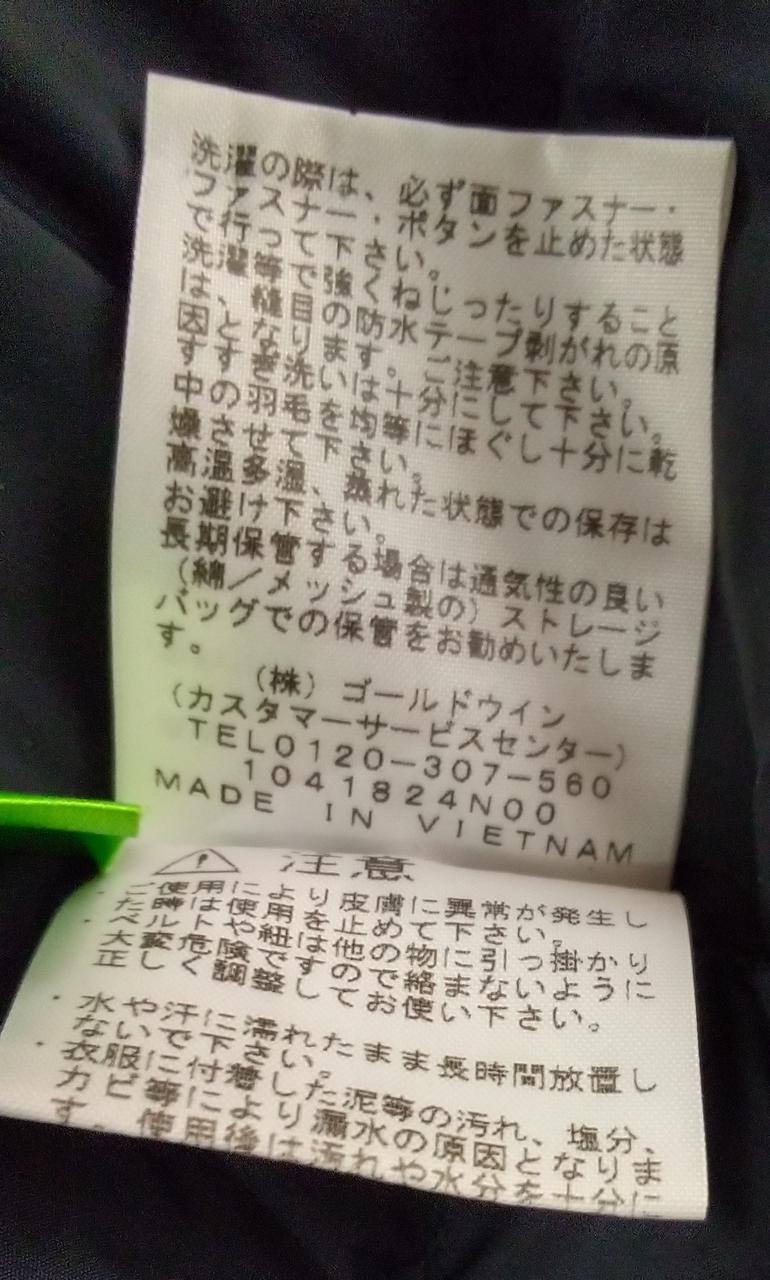 洗濯の際は、必ず面ファスナー・
ファスナー・ボタンを止めた状態
で行って下さい。
洗濯等で強くねじったりすること
は、縫目の防水テープ剥がれの原
因となります。ご注意下さい。
すすぎ洗いは十分にして下さい。
中の羽毛を均等にほぐし十分に乾
燥させて下さい。
高温多湿、蒸れた状態での保存は
お避け下さい。
長期保管する場合は通気性の良い
(綿／メッシュ製の)ストレージ
バッグでの保管をお勧めいたしま
す。
(株)ゴールドウイン
(カスタマーサービスセンター)
TEL0120-307-560
1041824N00
MADE IN VIETNAM
注意
・ご使用により皮膚に異常が発生し
た時は使用を止めて下さい。
・ベルトや紐は他の物に引っ掛かり
大変危険ですので絡まないように
正しく調整してお使い下さい。
・水や汗に濡れたまま長時間放置し
ないで下さい。
・衣服に付着した泥等の汚れ、塩分、
カビ等により漏水の原因となりま
す。使用後は汚れや水分を十分に